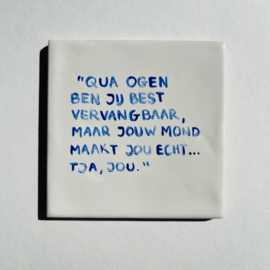 "QUA OGEN
BEN JIJ BEST
VERVANGBAAR,
MAAR JOUW MOND
MAAKT JOU ECHT...
TJA, JOU."